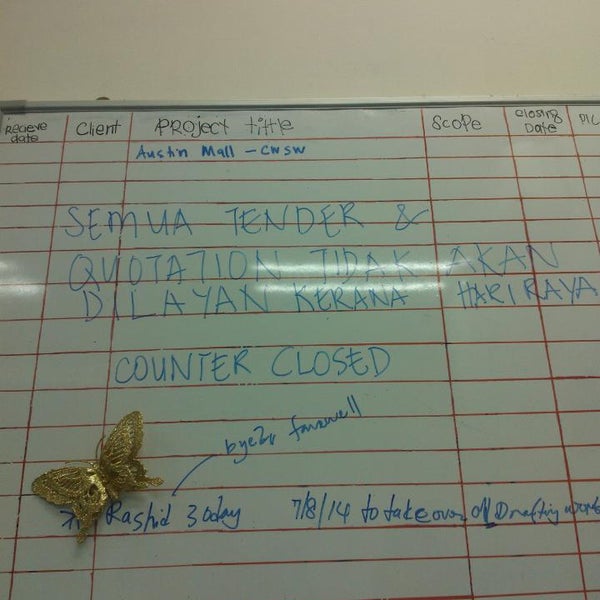 Recieve date Client Project tittle Scope closing Date PIC
Austin Mall - CWSW
SEMUA TENDER &
QUOTATION TIDAK AKAN
DILAYAN KERANA HARI RAYA
COUNTER CLOSED
bye2u farewell
Rashid 30day 7/8/14 to takeover all Drafting works